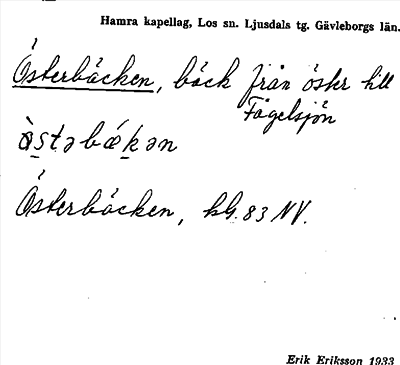 Hamra kapellag, Los sn. Ljusdals tg. Gävleborgs län.
Österbäcken, bäck från öster till
Fågelsjön
Österbäcken, kbl. 83 NV.
Erik Eriksson 1933